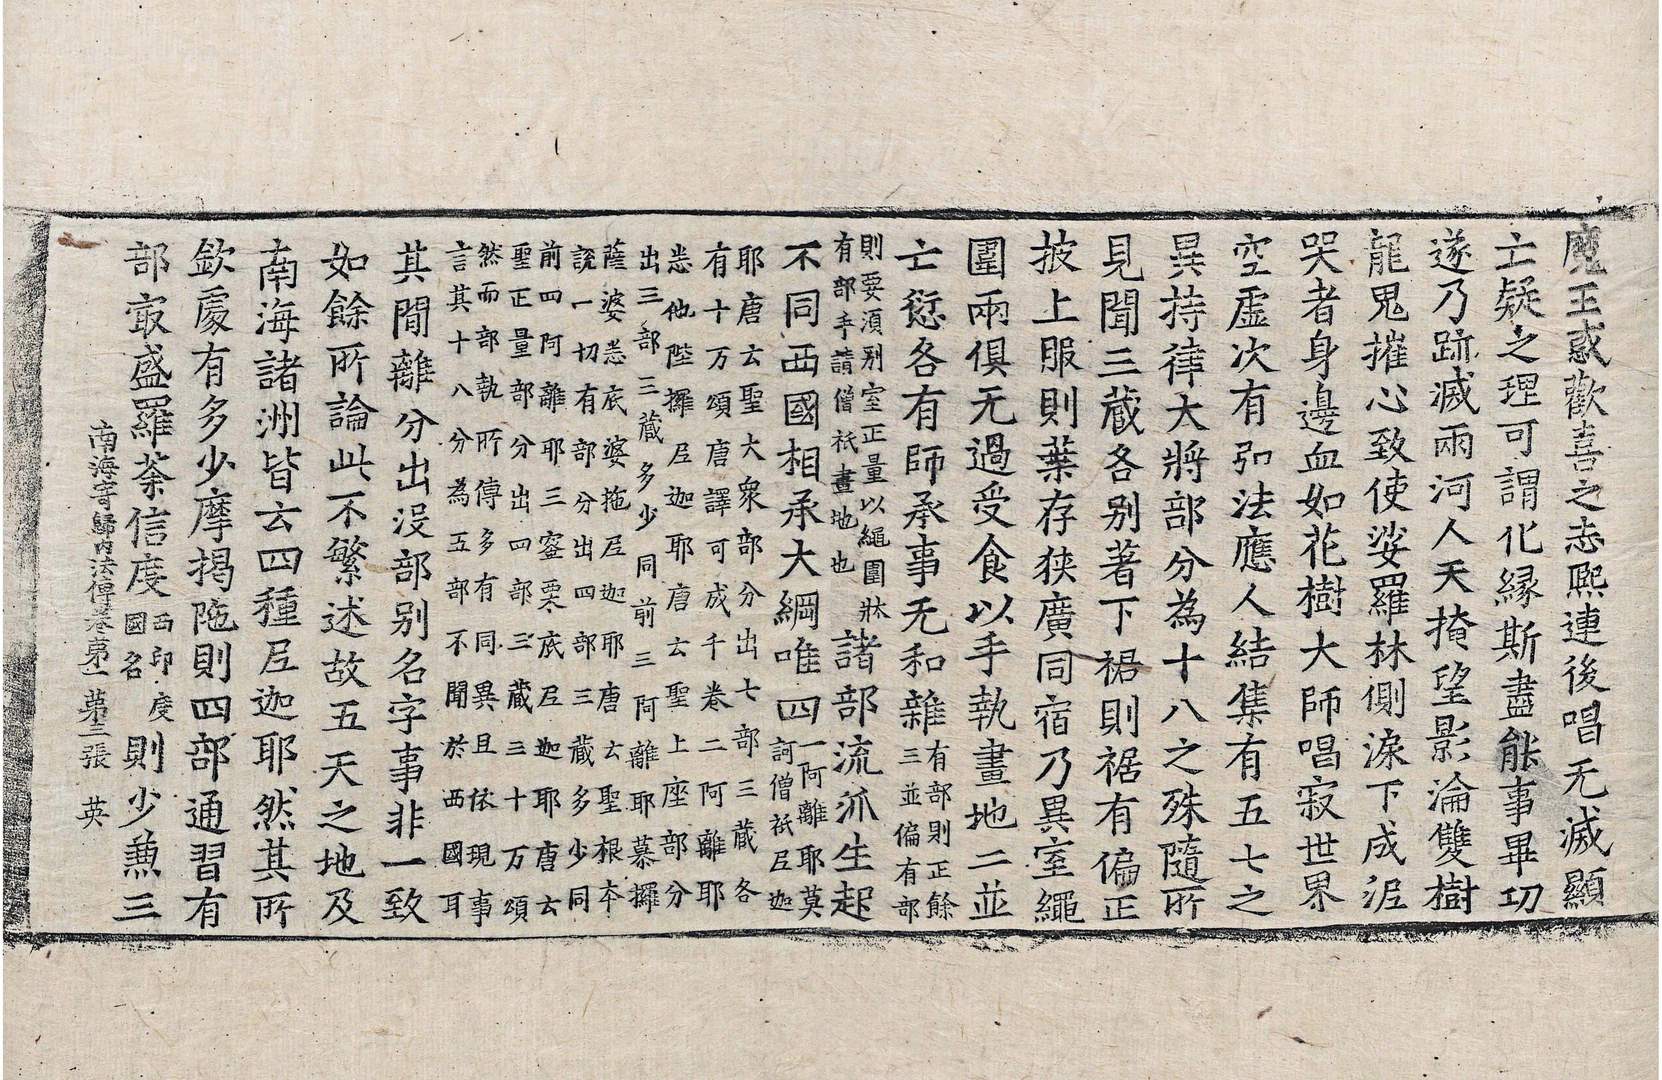 魔王惑歡喜之志熙連後唱无滅顯
亡疑之理可謂化緣斯盡能事畢功
遂乃跡滅兩河人天掩望影淪雙樹
龍鬼摧心致使娑羅林側淚下成泥
哭者身邊血如花樹大師唱寂世界
空虛次有弘法應人結集有五七之
異持律大將部分為十八之殊隨所
見聞三藏各別著下裙則裾有偏正
披上服則葉存狹廣同宿乃異室繩
圍兩俱无過受食以手執畫地二並
亡愆各有師承事无和雜
有部則正餘
三並偏有部
則要須別室正量以繩圍牀
有部手請僧祇畫地也
諸部流派生起
不同西國相承大綱唯四
一阿離耶莫
訶僧祇尼迦
耶唐云聖大衆部分出七部三藏各
有十万頌唐譯可成千卷二阿離耶
悉他陛攞尼迦耶唐云聖上座部分
出三部三藏多少同前三阿離耶慕攞
薩婆悉底婆拖尼迦耶唐云聖根本
說一切有部分出四部三藏多少同
前四阿離耶三蜜栗底尼迦耶唐云
聖正量部分出四部三藏三十万頌
然而部執所傳多有同異且依現事
言其十八分為五部不聞於西國耳
其間離分出沒部別名字事非一致
如餘所論此不繁述故五天之地及
南海諸洲皆云四種尼迦耶然其所
欽處有多少摩揭陁則四部通習有
部㝡盛羅荼信度
西印度
國名
則少兼三
南海寄歸內法傳卷第一 第三張 英